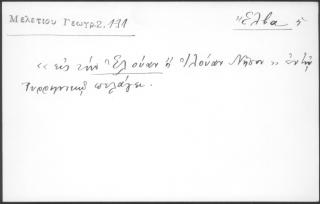 Μελετίου Γεωγρ. 2. 191
Ἔλβα ἡ
« εἰς τὴν Ἐλούαν ἢ Ἰλούαν Νῆσον » ἐν τῷ
Τυρρηνικῷ πελάγει.